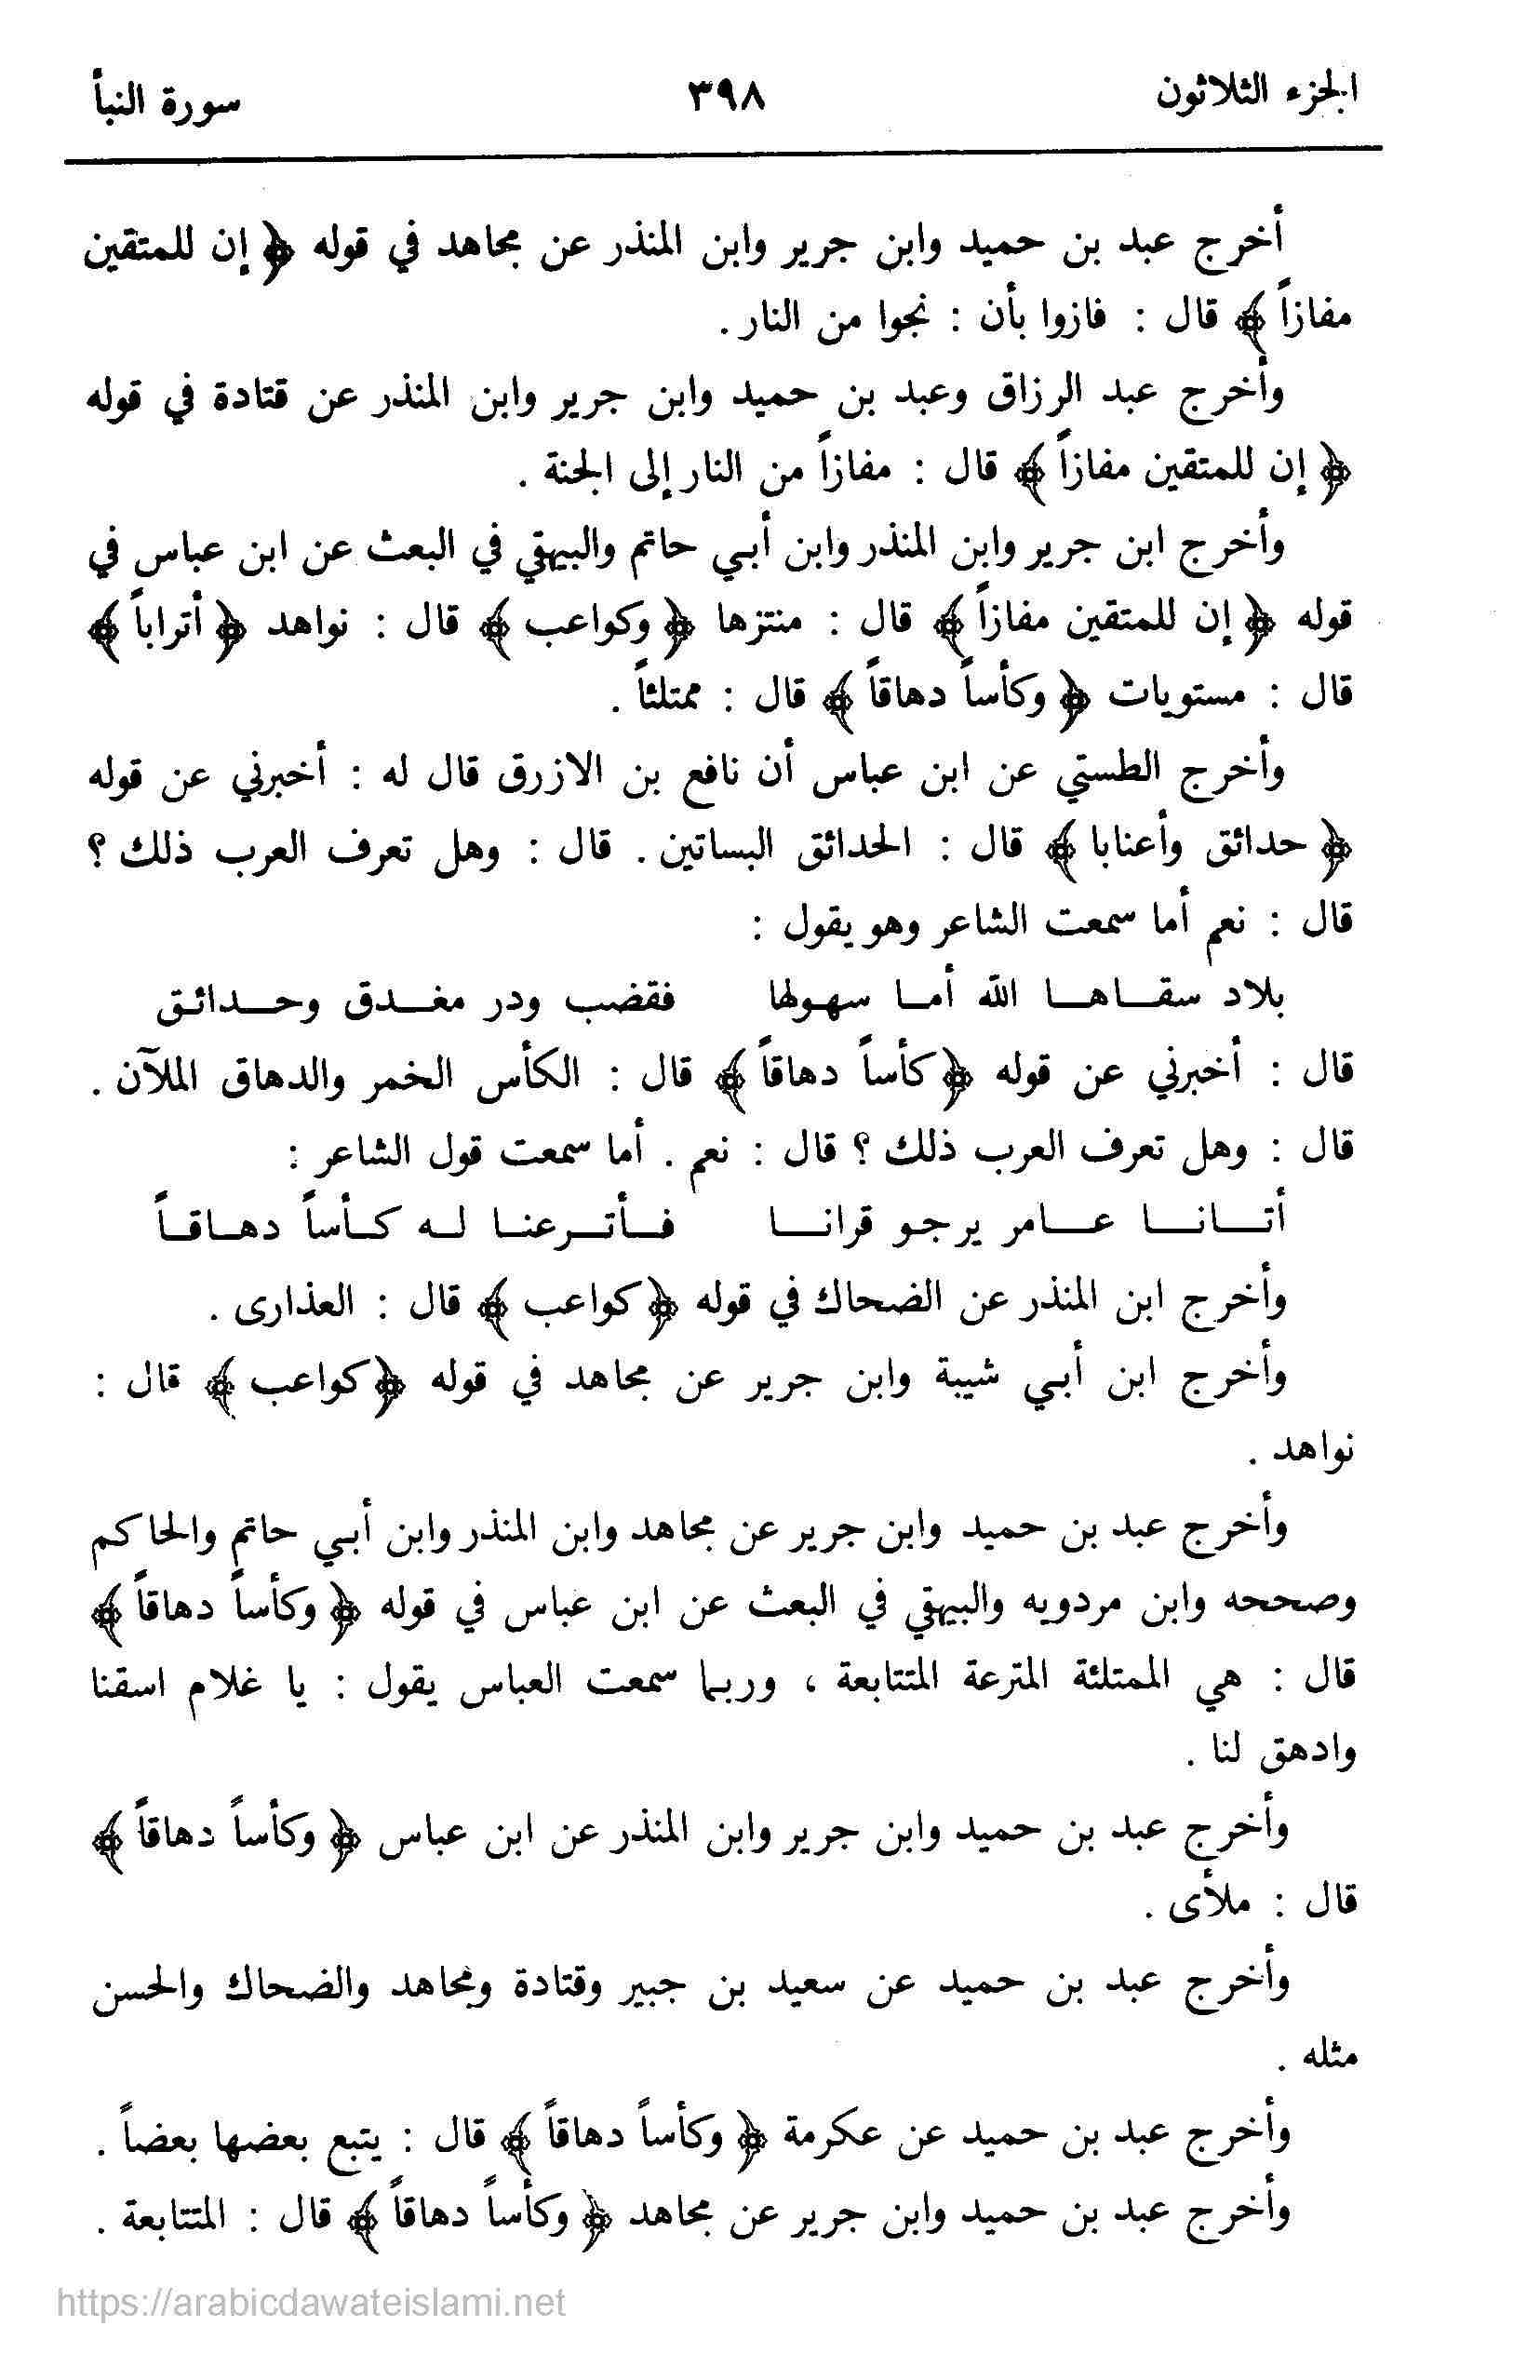 الجزء الثلاثون ٣٩٨ سورة النبأ
أخرج عبد بن حميد وابن جرير وابن المنذر عن مجاهد في قوله ﴿ إن للمتقين
مفازاً ﴾ قال : فازوا بأن : نجوا من النار .
وأخرج عبد الرزاق وعبد بن حميد وابن جرير وابن المنذر عن قتادة في قوله
﴿ إن للمتقين مفازاً ﴾ قال : مفازاً من النار إلى الجنة .
وأخرج ابن جرير وابن المنذر وابن أبي حاتم والبيهقي في البعث عن ابن عباس في
قوله ﴿ إن للمتقين مفازاً ﴾ قال : منتزها ﴿ وكواعب ﴾ قال : نواهد ﴿ أتراباً ﴾
قال : مستويات ﴿ وكأساً دهاقاً ﴾ قال : ممتلئاً .
وأخرج الطستي عن ابن عباس أن نافع بن الازرق قال له : أخبرني عن قوله
﴿ حدائق وأعنابا ﴾ قال : الحدائق البساتين . قال : وهل تعرف العرب ذلك ؟
قال : نعم أما سمعت الشاعر وهو يقول :
بلاد سقاها الله أما سهولها فقضب ودر مغدق وحدائق
قال : أخبرني عن قوله ﴿ كأساً دهاقاً ﴾ قال : الكأس الخمر والدهاق الملآن .
قال : وهل تعرف العرب ذلك ؟ قال : نعم . أما سمعت قول الشاعر :
أتانا عامر يرجو قرانا فأترعنا له كأساً دهاقاً
وأخرج ابن المنذر عن الضحاك في قوله ﴿ كواعب ﴾ قال : العذارى .
وأخرج ابن أبي شيبة وابن جرير عن مجاهد في قوله ﴿ كواعب ﴾ قال :
نواهد .
وأخرج عبد بن حميد وابن جرير عن مجاهد وابن المنذر وابن أبي حاتم والحاكم
وصححه وابن مردويه والبيهقي في البعث عن ابن عباس في قوله ﴿ وكأساً دهاقاً ﴾
قال : هي الممتلئة المترعة المتتابعة ، وربما سمعت العباس يقول : يا غلام اسقنا
وادهق لنا .
وأخرج عبد بن حميد وابن جرير وابن المنذر عن ابن عباس ﴿ وكأساً دهاقاً ﴾
قال : ملأى .
وأخرج عبد بن حميد عن سعيد بن جبير وقتادة ومجاهد والضحاك والحسن
مثله .
وأخرج عبد بن حميد عن عكرمة ﴿ وكأساً دهاقاً ﴾ قال : يتبع بعضها بعضاً .
وأخرج عبد بن حميد وابن جرير عن مجاهد ﴿ وكأساً دهاقاً ﴾ قال : المتتابعة .
https://arabicdawateislami.net